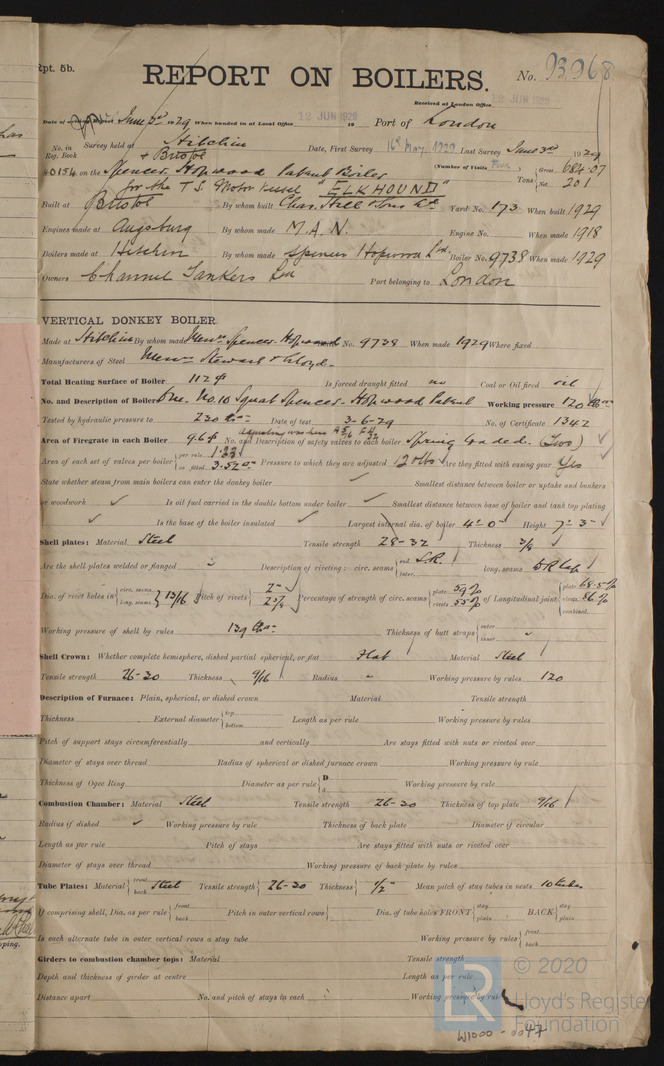 Rpt. 5b.
REPORT ON BOILERS.
No. 93968
Received at London Office
12 JUN 1929
Date of Report June 3rd 1929 When handed in at Local Office 12 JUN 1929 19 Port of London
No. in Reg. Book Survey held at Hitchin + Bristol Date, First Survey 16th May 1929 Last Survey June 3rd 1929
(Number of Visits Five)
40154 on the Spencer Hopwood Patent Boiler Tons Gross 684.07 Net 201
for the T.S. Motor Vessel "ELKHOUND"
Built at Bristol By whom built Chas. Hill & Sons Ld Yard No. 173 When built 1929
Engines made at Augsburg By whom made M.A.N. Engine No. When made 1918
Boilers made at Hitchin By whom made Spencer Hopwood Ltd. Boiler No. 9738 When made 1929
Owners Channel Tankers Ltd Port belonging to London
VERTICAL DONKEY BOILER.
Made at Hitchin By whom made Messrs Spencer-Hopwood No. 9738 When made 1929 Where fixed
Manufacturers of Steel Messrs Stewart & Lloyd.
Total Heating Surface of Boiler 112 Is forced draught fitted no Coal or Oil fired oil
No. and Description of Boilers One. No. 10 Squat Spencer-Hopwood Patent Working pressure 120 lbs
Tested by hydraulic pressure to 230 lbs Date of test 3-6-29 No. of Certificate 1342
Area of Firegrate in each Boiler 9.6 No. and Description of safety valves to each boiler Spring loaded. (Two)
Area of each set of valves per boiler per rule 1.23 as fitted 3.52 Pressure to which they are adjusted 120 lbs Are they fitted with easing gear Yes
State whether steam from main boilers can enter the donkey boiler Smallest distance between boiler or uptake and bunkers
or woodwork Is oil fuel carried in the double bottom under boiler Smallest distance between base of boiler and tank top plating
Is the base of the boiler insulated Largest internal dia. of boiler 4'-0" Height 7'-3"
Shell plates: Material Steel Tensile strength 28-32 Thickness 3/8
Are the shell plates welded or flanged Description of riveting: circ. seams end S.R. inter. long. seams D.R. Lap
Dia. of rivet holes in circ. seams long. seams 13/16 Pitch of rivets 2" 2 5/8 Percentage of strength of circ. seams plate 59% rivets 55% of Longitudinal joint plate 68.5% rivets 86% combined
Working pressure of shell by rules 139 lbs Thickness of butt straps outer inner
Shell Crown: Whether complete hemisphere, dished partial spherical, or flat Flat Material Steel
Tensile strength 26-30 Thickness 9/16 Radius Working pressure by rules 120
Description of Furnace: Plain, spherical, or dished crown Material Tensile strength
Thickness External diameter top bottom Length as per rule Working pressure by rules
Pitch of support stays circumferentially and vertically Are stays fitted with nuts or riveted over
Diameter of stays over thread Radius of spherical or dished furnace crown Working pressure by rule
Thickness of Ogee Ring Diameter as per rule D d Working pressure by rule
Combustion Chamber: Material Steel Tensile strength 26-30 Thickness of top plate 9/16
Radius if dished Working pressure by rule Thickness of back plate Diameter if circular
Length as per rule Pitch of stays Are stays fitted with nuts or riveted over
Diameter of stays over thread Working pressure of back plate by rules
Tube Plates: Material front back Steel Tensile strength 26-30 Thickness 1/2" Mean pitch of stay tubes in nests 10 tubes
If comprising shell, Dia. as per rule front back Pitch in outer vertical rows Dia. of tube holes FRONT stay plain BACK stay plain
Is each alternate tube in outer vertical rows a stay tube Working pressure by rules front back
Girders to combustion chamber tops: Material Tensile strength
Depth and thickness of girder at centre Length as per rule
Distance apart No. and pitch of stays in each Working pressure by rule
LR
© 2020
Lloyd's Register
Foundation
W1000-0047